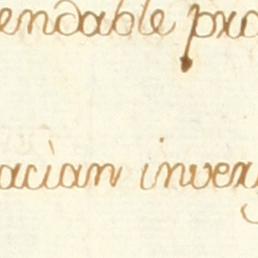 endable pro
acian inver